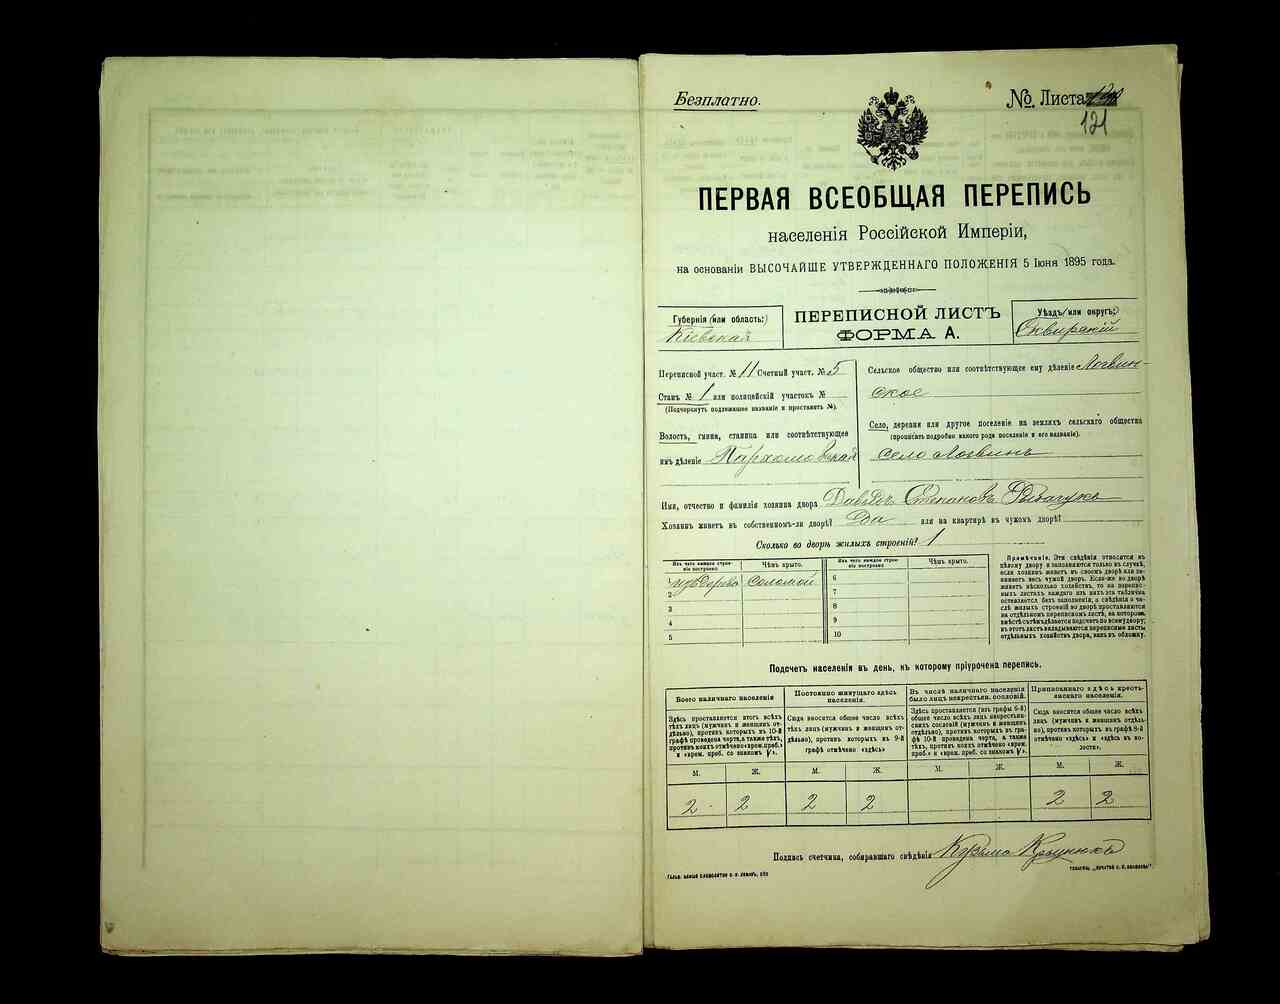 Безплатно.
№ Листа
121
ПЕРВАЯ ВСЕОБЩАЯ ПЕРЕПИСЬ
населенія Россійской Имперіи,
на основаніи ВЫСОЧАЙШЕ УТВЕРЖДЕННАГО ПОЛОЖЕНІЯ 5 Іюня 1895 года.
Губернія (или область:)
Кіевская
ПЕРЕПИСНОЙ ЛИСТЪ
ФОРМА А.
Уѣздъ (или округъ:)
Сквирскій
Переписной участ. № 11 Счетный участ. № 5
Станъ № 1 или полицейскій участокъ №
(Подчеркнуть подлежащее названіе и проставить №).
Волость, гмина, станица или соотвѣтствующее
имъ дѣленіе Пархомовская
Сельское общество или соотвѣтствующее ему дѣленіе Логвин-
ское
Село, деревня или другое поселеніе на земляхъ сельскаго общества
(прописать подробно какого рода поселеніе и его названіе).
село Логвинъ
Имя, отчество и фамилія хозяина двора Давидъ Степановъ
Хозяинъ живетъ въ собственномъ-ли дворѣ? Да или на квартирѣ въ чужомъ дворѣ?
Сколько во дворѣ жилыхъ строеній? 1
Изъ чего каждое строе-
ніе построено.
Чѣмъ крыто.
Изъ чего каждое строе-
ніе построено.
Чѣмъ крыто.
изъ дерева соломой
2
3
4
5
6
7
8
9
10
Примѣчаніе. Эти свѣдѣнія относятся къ
цѣлому двору и заполняются только въ случаѣ,
если хозяинъ живетъ въ своемъ дворѣ или за-
нимаетъ весь чужой дворъ. Если-же во дворѣ
живетъ нѣсколько хозяйствъ, то на перепис-
ныхъ листахъ каждаго изъ нихъ эта табличка
оставляется безъ заполненія, а свѣдѣнія о чи-
слѣ жилыхъ строеній во дворѣ проставляются
на отдѣльномъ переписномъ листѣ, на которомъ
вмѣстѣ съ тѣмъ дѣлается подсчетъ по всему двору;
въ этотъ листъ вкладываются переписные листы
отдѣльныхъ хозяйствъ двора, какъ въ обложку.
Подсчетъ населенія въ день, къ которому пріурочена перепись.
Всего наличнаго населенія
Здѣсь проставляется итогъ всѣхъ
тѣхъ лицъ (мужчинъ и женщинъ от-
дѣльно), противъ которыхъ въ 10-й
графѣ проведена черта, а также тѣхъ,
противъ коихъ отмѣчено «врем. преб.»
и «врем. преб. со знакомъ V».
Постоянно живущаго здѣсь
населенія.
Сюда вносится общее число всѣхъ
тѣхъ лицъ (мужчинъ и женщинъ от-
дѣльно), противъ которыхъ въ 9-й
графѣ отмѣчено «здѣсь»
Въ числѣ наличнаго населенія
было лицъ некрестьян. сословій.
Здѣсь проставляется (изъ графы 6-й)
общее число всѣхъ лицъ некрестьян-
скихъ сословій (мужчинъ и женщинъ
отдѣльно), противъ которыхъ въ гра-
фѣ 10-й проведена черта, а также
тѣхъ, противъ коихъ отмѣчено «врем.
преб.» и «врем. преб. со знакомъ V».
Приписаннаго здѣсь кресть-
янскаго населенія.
Сюда вносится общее число всѣхъ
лицъ (мужчинъ и женщинъ отдѣль-
но), противъ которыхъ въ графѣ 8-й
отмѣчено «здѣсь» и «здѣсь въ во-
лости».
М. Ж. М. Ж. М. Ж. М. Ж.
2 2 2 2 2 2
Подпись счетчика, собиравшаго свѣдѣнія Кузьма